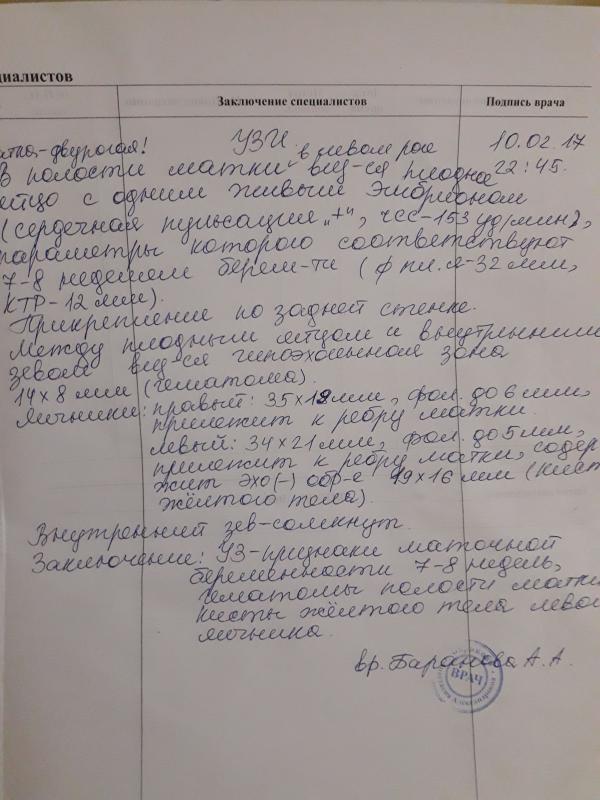 циалистов
Заключение специалистов
Подпись врача
УЗИ.
10.02.17
22:45.
атка-двурогая!
в левом роге
В полости матки вид-ся плодное
яйцо с одним живым эмбрионом
(сердечная пульсация „+“, ЧСС-153 уд/мин),
параметры которого соответствуют
7-8 неделям берем-ти (ф пл.я-32 мм,
КТР-12 мм).
Прикрепление по задней стенке.
Между плодным яйцом и внутренним
зевом вид-ся гипоэхогенная зона
14×8 мм (гематома).
Яичники: правый: 35×18мм, фол. до 6 мм,
прилежит к ребру матки.
левый: 34×21мм, фол. до 5мм,
прилежит к ребру матки, содер
жит эхо(-) обр-е 19×16 мм (кист
жёлтого тела).
Внутренний зев-сомкнут.
Заключение: УЗ-признаки маточной
беременности 7-8 недель,
гематомы полости матки
кисты жёлтого тела лево
яичника.
вр. Баранова А.А.
ВРАЧ